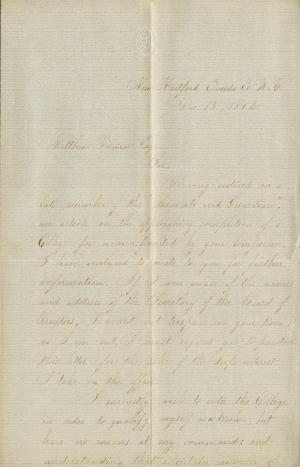 New Hartford Oneida Co. N.Y.
Matthew Vassar Esq
Sir,
Having noticed in a
late number of the "Advocate and Guardian",
an article on the approaching completion of a
College for women, founded by your
I have ventured to write to you for further
information. If I am aware of the name
and address of the Secretary of the Board of
Trustees, I would not trespass on your time,
as I am not, I must request you to pardon
this letter for the sake of the deep interest
I take in the
I earnestly wish to enter the College
in order to qualify myself as a teacher, but
have no means at my command; and
understanding that a certain number of